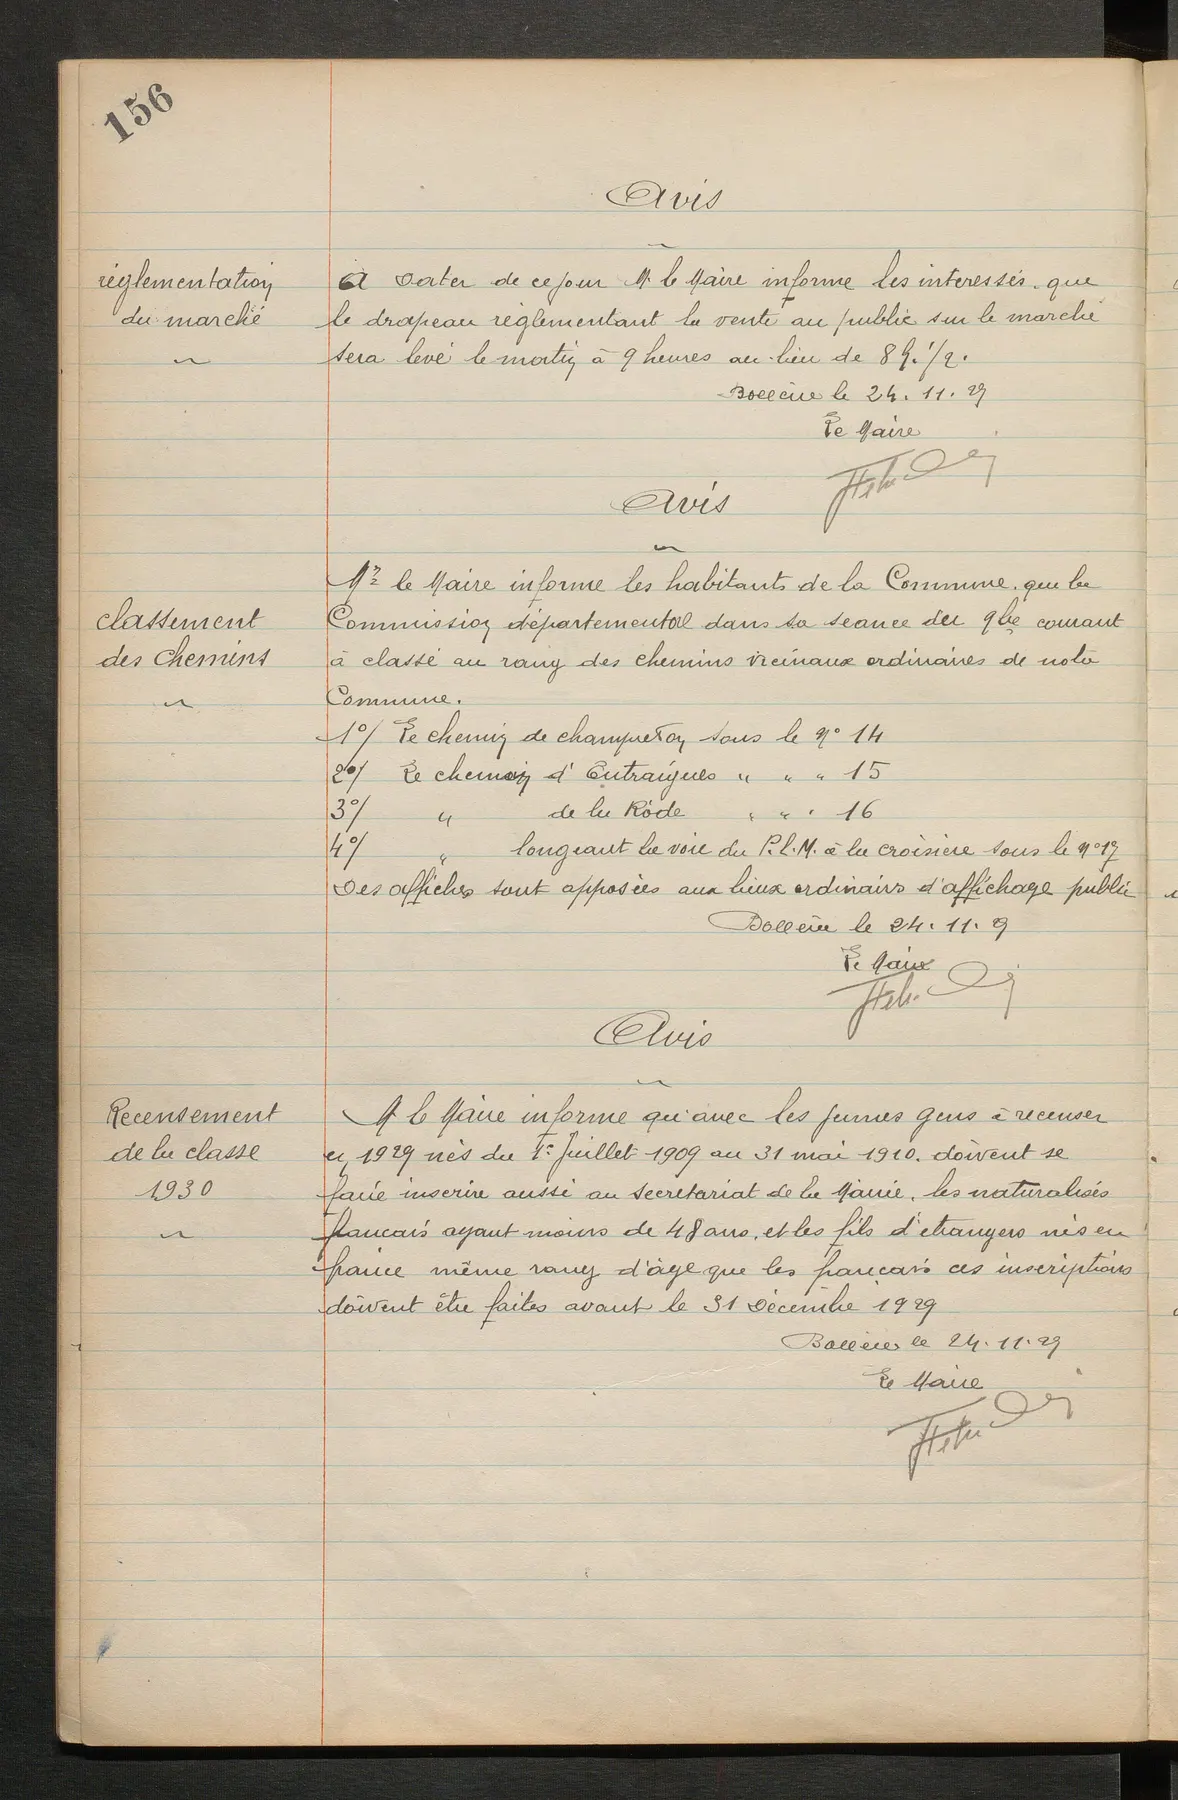 156
Avis
réglementation
du marché
A Dater de ce jour M. le Maire informe les interessés. que
le drapeau réglementant la vente au public sur le marché
sera levé le matin à 9 heures au lieu de 8 h. 1/2.
Bollène le 24. 11. 29
Le Maire
Avis
classement
des chemins
Mr le Maire informe les habitants de la Commune. que la
Commission départemental dans sa seance du 9bre courant
à classé au rang des chemins vicinaux ordinaires de notre
Commune.
1°/ Le chemin de champueton sous le n° 14
2°/ Le chemin d'Entraigues " " " 15
3°/ " de la Rode " " " 16
4°/ " longeant la voie du P.L.M. à la croisière sous le n° 17
Des affiches sont apposées aux lieux ordinairs d'affichage public
Bollène le 24. 11. 9
Le Maire
Avis
Recensement
de la classe
1930
M le Maire informe qu'avec les jeunes gens à recenser
en 1929 nés du 1er Juillet 1909 au 31 mai 1910. doivent se
faire inscrire aussi au secretariat de la Mairie. les naturalisés
francais ayant moins de 48 ans. et les fils d'etrangers nés en
france même rang d'âge que les francais ces inscriptions
doivent être faites avant le 31 Decembre 1929
Bollène le 24. 11. 29
Le Maire